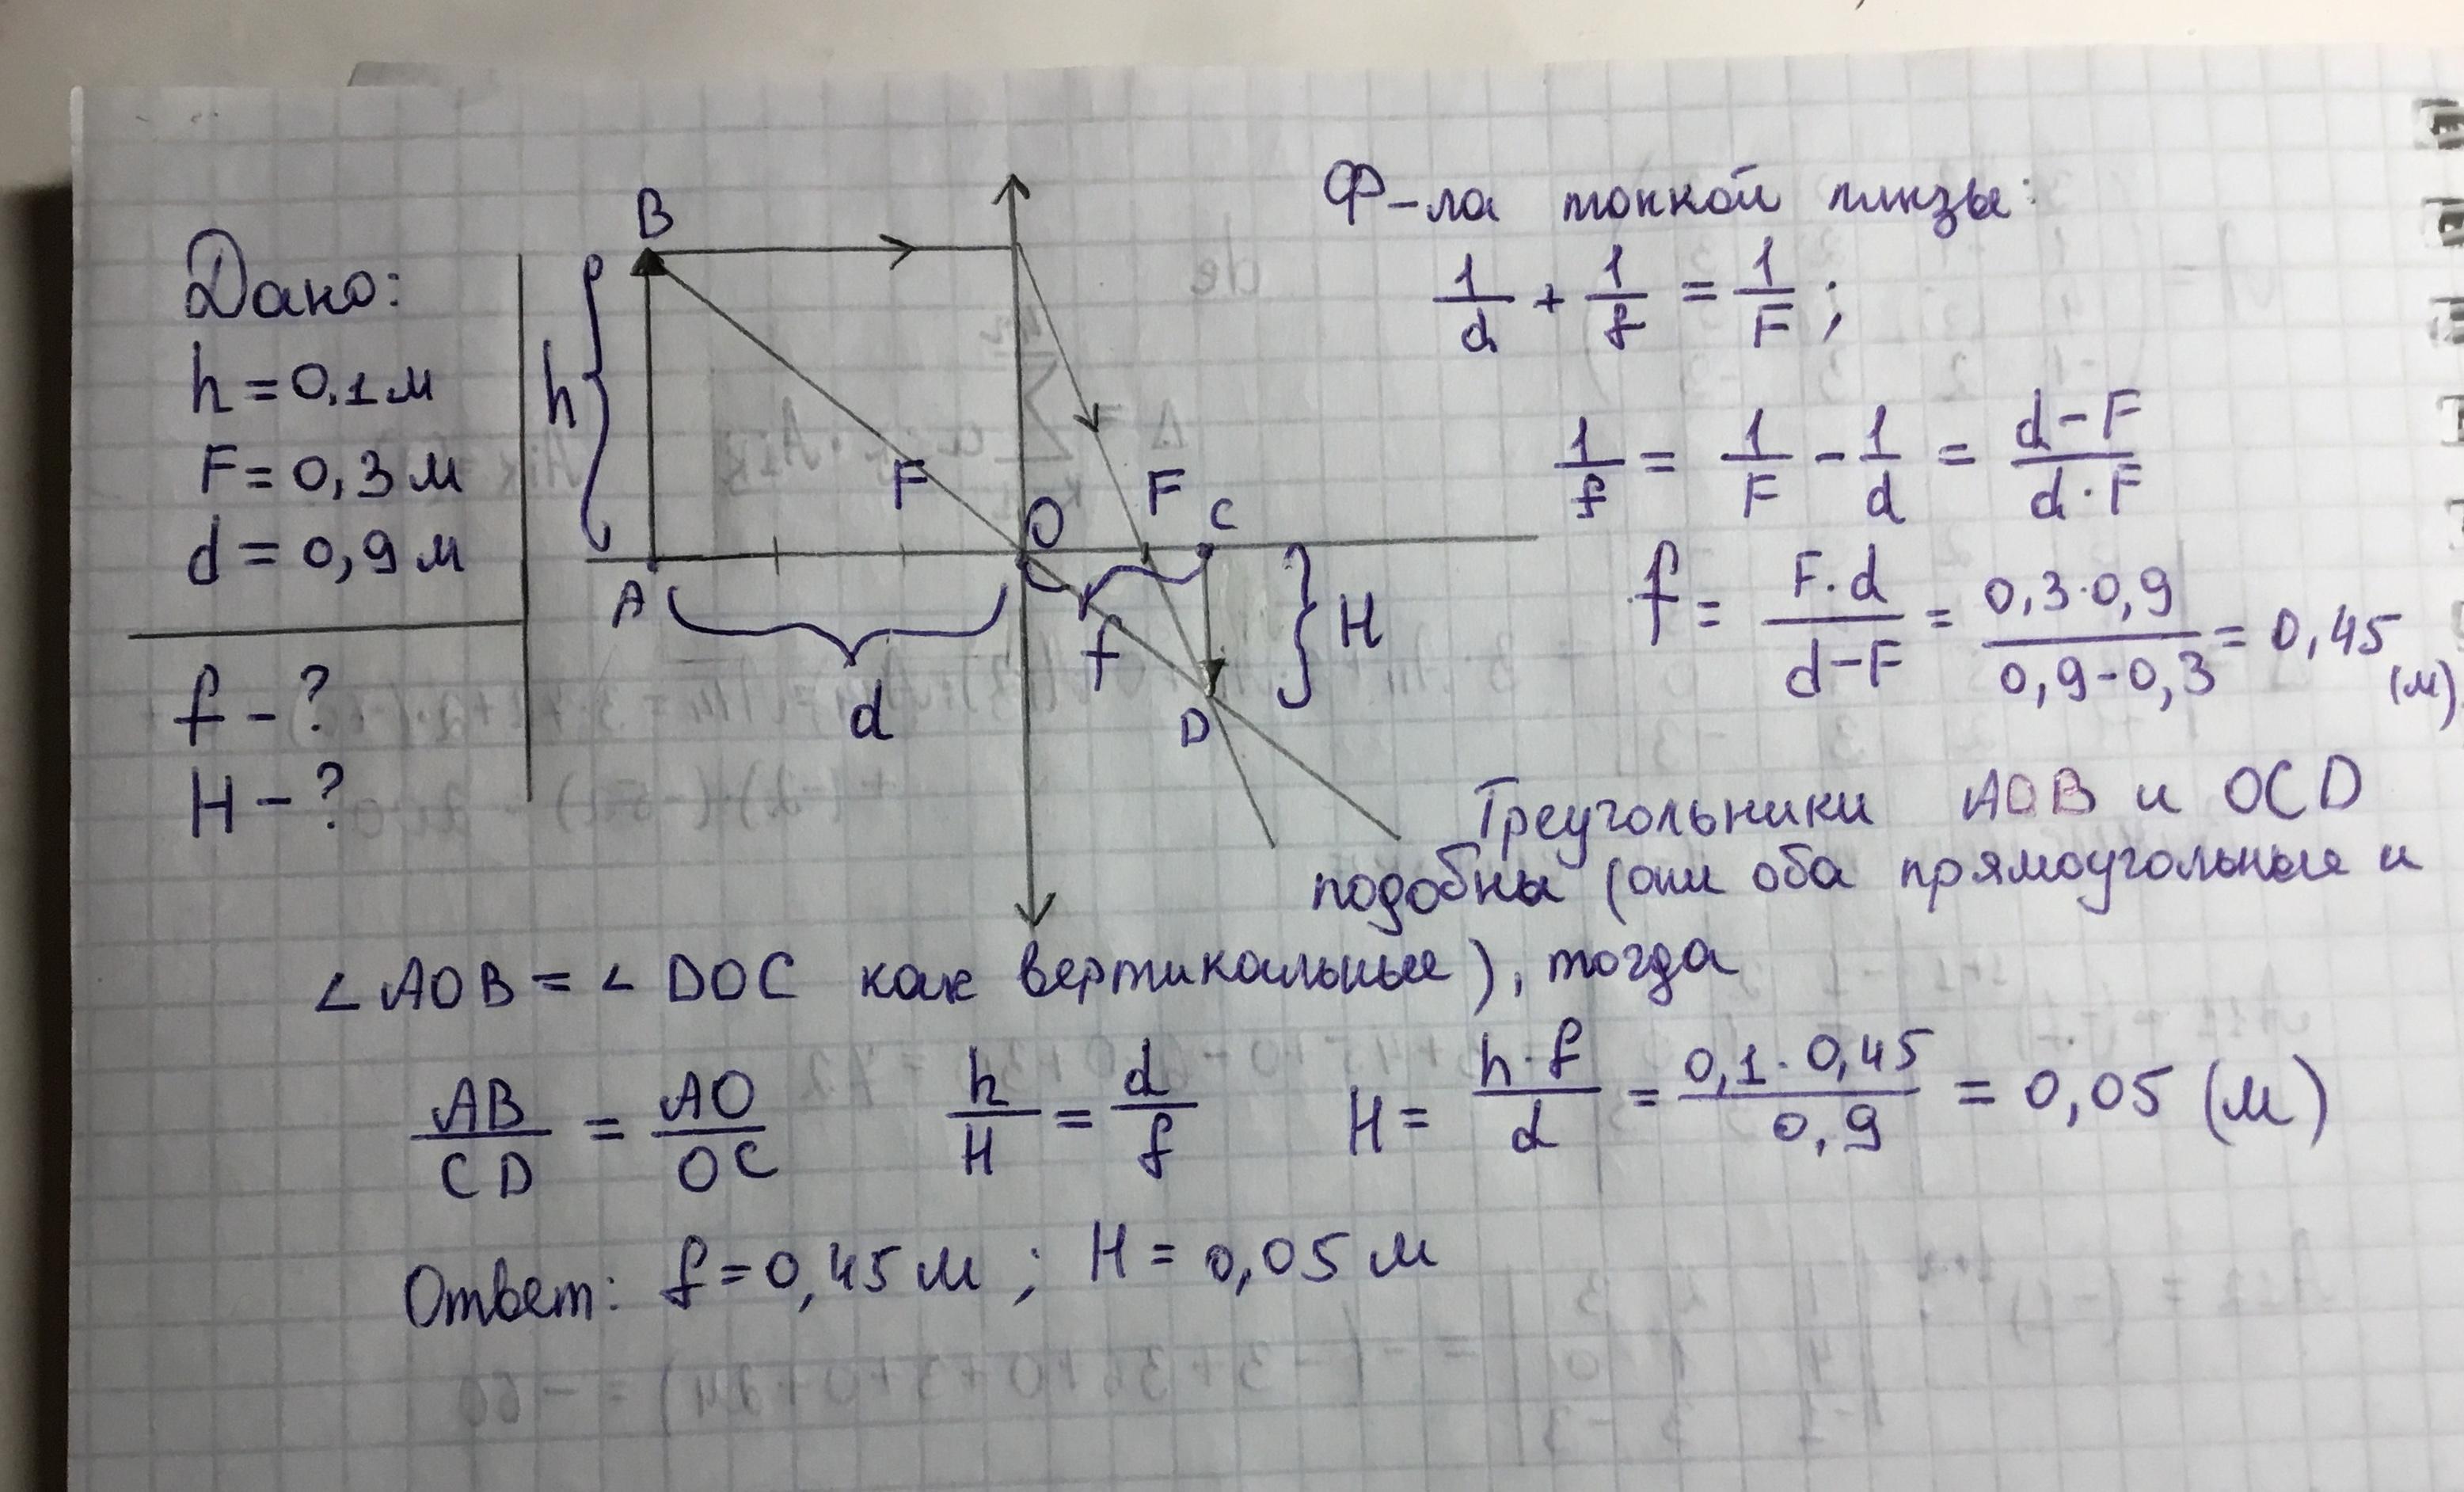 Дано:
h = 0,1 м
F = 0,3 м
d = 0,9 м
f - ?
H - ?
B
h
F
O
F
C
A
d
f
D
H
Ф-ла тонкой линзы:
1/d + 1/f = 1/F ;
1/f = 1/F - 1/d = (d-F)/(d·F)
f = (F·d)/(d-F) = (0,3·0,9)/(0,9-0,3) = 0,45 (м)
Треугольники AOB и OCD
подобны (они оба прямоугольные и
∠AOB = ∠DOC как вертикальные), тогда
AB/CD = AO/OC h/H = d/f H = (h·f)/d = (0,1·0,45)/0,9 = 0,05 (м)
Ответ: f = 0,45 м ; H = 0,05 м